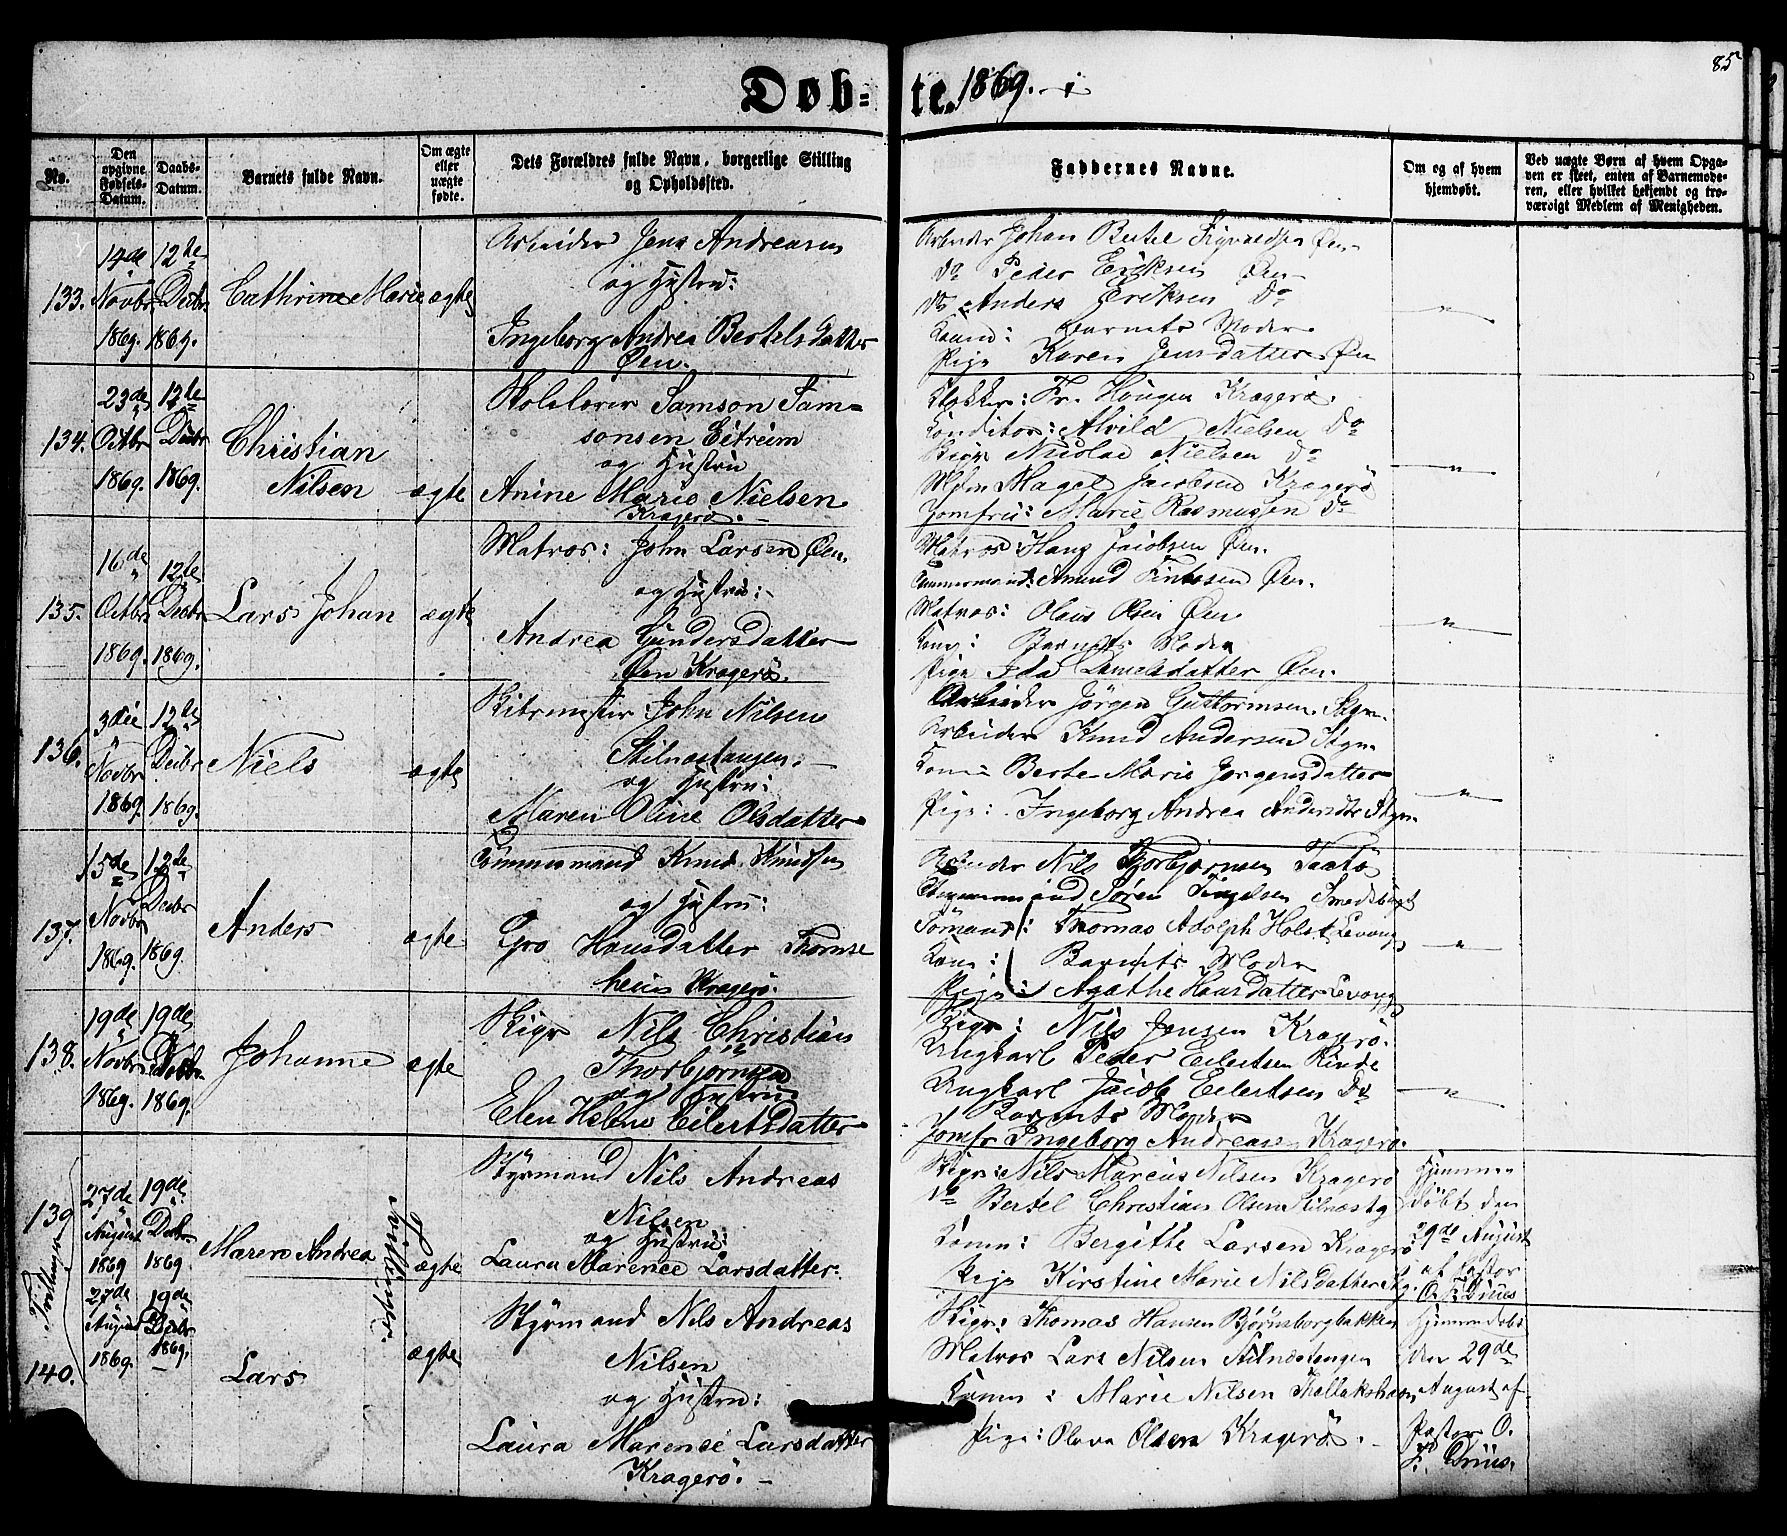 85
Døb-
te. 1869.
No.
Den opgivne Fødsels-Datum.
Daabs-Datum.
Barnets fulde Navn.
Om ægte eller uægte fødte.
Dets Forældres fulde Navn, borgerlige Stilling
og Opholdssted.
Faddernes Navne.
Om og af hvem hjemdøbt.
Ved uægte Børn af hvem Opga-
ven er skeet, enten af Barnemode-
ren, eller hvilket bekjendt og tro-
værdigt Medlem af Menigheden.
133.
14de Novbr 1869.
12te Decbr 1869.
Cathrine Marie
ægte
Arbeider Jens Andreasen
og Hustru:
Ingeborg Andrea Bertelsdatter
Øen.
Arbeider Johan Bertel Øen
Do Peder Eriksen Øen
Do Anders Eriksen Do
Kone: Barnets Moder
Pige Karen Jensdatter Øen
134.
23de Octbr 1869.
12te Decbr 1869.
Christian
Nilsen
ægte
Skolelærer Samson Sam=
sonsen Eitreim
og Hustru
Anine Marie Nielsen
Kragerö.
Klokker: Fr. Haugen Kragerö.
Conditor: Alvild Nielsen Do
Skipr Nicolai Nielsen Do
Jacobsen Kragerö
Jomfru: Marie Rasmussen Do
135.
16de Octbr 1869.
12te Decbr 1869.
Lars Johan
ægte
Matros: John Larsen Øen.
og Hustru:
Andrea Gundersdatter
Øen Kragerö.
Matros: Hans Jacobsen Øen.
Tømmermand: Amund Øen.
Matros: Olaus Olsen Øen
Kone: Barnets Moder
Pige Ida Øen.
136.
3die Novbr 1869.
12te Decbr 1869.
Niels
ægte
John Nilsen
Stilnæstangen.
og Hustru:
Maren Oline Olsdatter
Arbeider Jörgen Guttormsen
Arbeider Knud Andersen
Kone: Berte Marie Jørgensdatter
Pige: Ingeborg Andrea
137.
15de Novbr 1869.
12te Decbr 1869.
Anders
ægte
Tømmermand Knud Knudsen
og Hustru:
Gro Hansdatter
Kragerö.
Arbeider Nils Thorbjornsen Taatö
Tømmermand Søren
Tømand: Thomas Adolph Holst Levang
Kone: Barnets Moder
Pige: Agathe Hansdatter Levang
138.
19de Novbr 1869.
19de Decbr 1869.
Johanne
ægte
Skipr Nils Christian
Thorbjörnsen
og Hustru
Elen Helene Eilertsdatter
Skipr: Nils Jensen Kragerö.
Ungkarl Peder Eilertsen Rinde
Ungkarl Jacob Eilertsen Do
Barnets Moder
Jomfr Ingeborg Andreasen Kragerö.
139
Tvillinger
27de August 1869
19de Decbr 1869.
Maren Andrea
Tvillinger
ægte
Styrmand Nils Andreas
Nilsen
og Hustru:
Laura Marence Larsdatter.
Skipr: Nils Marcus Nilsen Kragerö
Do Bertel Christian Olsen
Kone: Bergitte Larsen Kragerö
Pige Kirstine Marie Nilsdatter
Hjemme
døbt den
29de August
af Pastor
140.
27de August 1869.
19de Decbr 1869.
Lars
ægte
Styrmand Nils Andreas
Nilsen
og Hustru:
Laura Marence Larsdatter
Kragerö.
Skipr: Thomas Hansen Björnsborgbakken
Matros Lars Nilsen Stilnæstangen
Kone: Marie Nilsen
Pige: Olava Olsen Kragerö.
Hjemmedøbt
den 29de
August af
Pastor O.